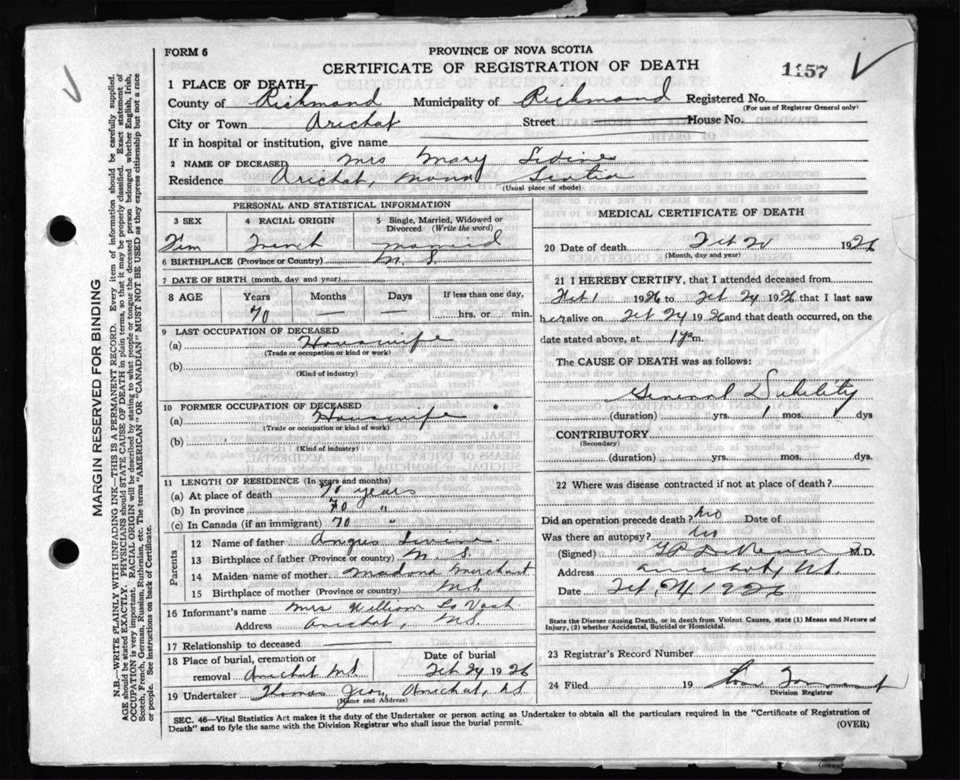 FORM 6
PROVINCE OF NOVA SCOTIA
CERTIFICATE OF REGISTRATION OF DEATH
1157
1 PLACE OF DEATH
County of Richmond Municipality of Richmond Registered No.
(For use of Registrar General only)
City or Town Arichat Street House No.
If in hospital or institution, give name
2 NAME OF DECEASED Mrs Mary
Residence Arichat, Nova Scotia
(Usual place of abode)
PERSONAL AND STATISTICAL INFORMATION
3 SEX 4 RACIAL ORIGIN 5 Single, Married, Widowed or Divorced (Write the word)
Fem French married
6 BIRTHPLACE (Province or Country) N. S.
7 DATE OF BIRTH (month, day and year)
8 AGE Years Months Days If less than one day,
70 — — hrs. or min.
9 LAST OCCUPATION OF DECEASED
(a) Housewife
(Trade or occupation or kind or work)
(b)
(Kind of industry)
10 FORMER OCCUPATION OF DECEASED
(a) Housewife
(Trade or occupation or kind of work)
(b)
(Kind of industry)
11 LENGTH OF RESIDENCE (In years and months)
(a) At place of death 70 years
(b) In province 70 "
(c) In Canada (if an immigrant) 70 "
Parents
12 Name of father Angus
13 Birthplace of father (Province or country) N S.
14 Maiden name of mother Merchant
15 Birthplace of mother (Province or country) N.S.
16 Informant's name Mrs William
Address Arichat, N.S.
17 Relationship to deceased
18 Place of burial, cremation or removal Arichat N.S. Date of burial Feb 24 1926
19 Undertaker Thomas Arichat, N.S.
(Name and Address)
MEDICAL CERTIFICATE OF DEATH
20 Date of death Feb 1926
(Month, day and year)
21 I HEREBY CERTIFY, that I attended deceased from
Feb 1 1926 to Feb 24 1926 that I last saw
her alive on Feb 24 1926 and that death occurred, on the
date stated above, at m.
The CAUSE OF DEATH was as follows:
General Debility
(duration) yrs. mos. dys
CONTRIBUTORY
(Secondary)
(duration) yrs. mos. dys.
22 Where was disease contracted if not at place of death?
Did an operation precede death? No Date of
Was there an autopsy? No
(Signed) M.D.
Address Arichat, N.S.
Date Feb, 24 1926
State the Disease causing Death, or in death from Violent Causes, state (1) Means and Nature of
Injury, (2) whether Accidental, Suicidal or Homicidal.
23 Registrar's Record Number
24 Filed 19
Division Registrar
SEC. 46—Vital Statistics Act makes it the duty of the Undertaker or person acting as Undertaker to obtain all the particulars required in the "Certificate of Registration of
Death" and to fyle the same with the Division Registrar who shall issue the burial permit.
(OVER)
MARGIN RESERVED FOR BINDING
N.B.—WRITE PLAINLY WITH UNFADING INK—THIS IS A PERMANENT RECORD. Every item of information should be carefully supplied.
AGE should be stated EXACTLY. PHYSICIANS should STATE CAUSE OF DEATH in plain terms, so that it may be properly classified. Exact statement of
OCCUPATION is very important. RACIAL ORIGIN will be described by stating to what people or tongue the deceased person belonged whether English, Irish,
Scotch, French, German, Russian, Ruthenian, etc. The terms "AMERICAN" OR "CANADIAN" MUST NOT BE USED as they express citizenship but not a race
or people. See instructions on back of Certificate.